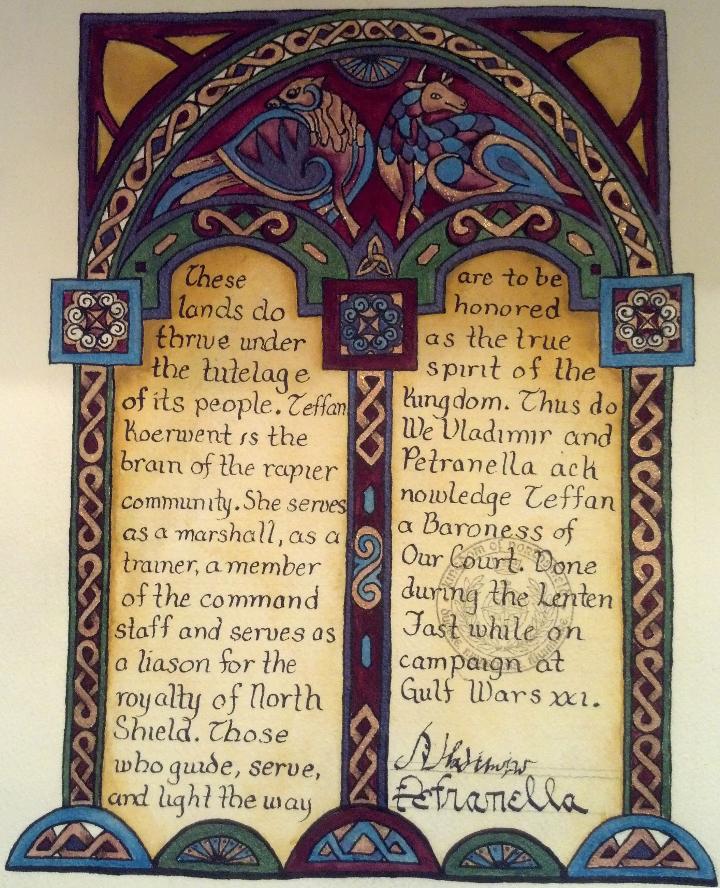 These
lands do
thrive under
the tutelage
of its people. Teffan
Koerwent is the
brain of the rapier
community. She serves
as a marshall, as a
trainer, a member
of the command
staff and serves as
a liason for the
royalty of North
Shield. Those
who guide, serve,
and light the way
are to be
honored
as the true
spirit of the
Kingdom. Thus do
We Vladimir and
Petranella ack
nowledge Teffan
a Baroness of
Our Court. Done
during the Lenten
Fast while on
campaign at
Gulf Wars xxi.
Vladimir
Petranella